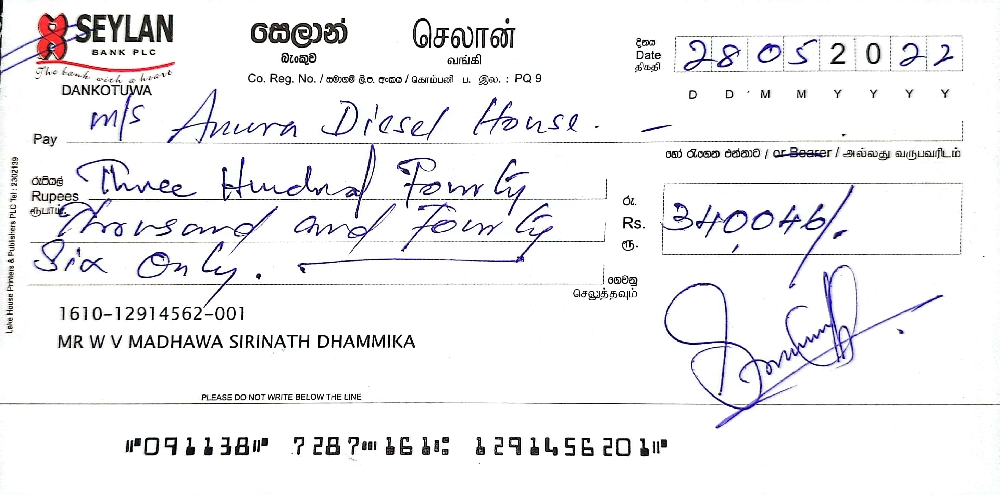 SEYLAN
BANK PLC
The bank with a heart
DANKOTUWA
සෙලාන්
බැංකුව
செலான்
வங்கி
Co. Reg. No. / සමාගම් ලි.ප. අංකය / கொம்பனி ப. இல. : PQ 9
දිනය
Date
திகதி
28 05 2022
D D M M Y Y Y Y
Pay
m/s Anura Diesel House. —
හෝ රැගෙන එන්නාට / or Bearer / அல்லது வருபவரிடம்
රුපියල්
Rupees
ரூபாய்
Three Hundred Fourty
Thousand and Fourty
Six Only.
රු.
Rs.
ரூ.
340,046/.
ගෙවනු
செலுத்தவும்
1610-12914562-001
MR W V MADHAWA SIRINATH DHAMMIKA
PLEASE DO NOT WRITE BELOW THE LINE
⑈091138⑈ 7287⑉161⑆ 1291456201⑈
Lake House Printers & Publishers PLC Tel : 2302139